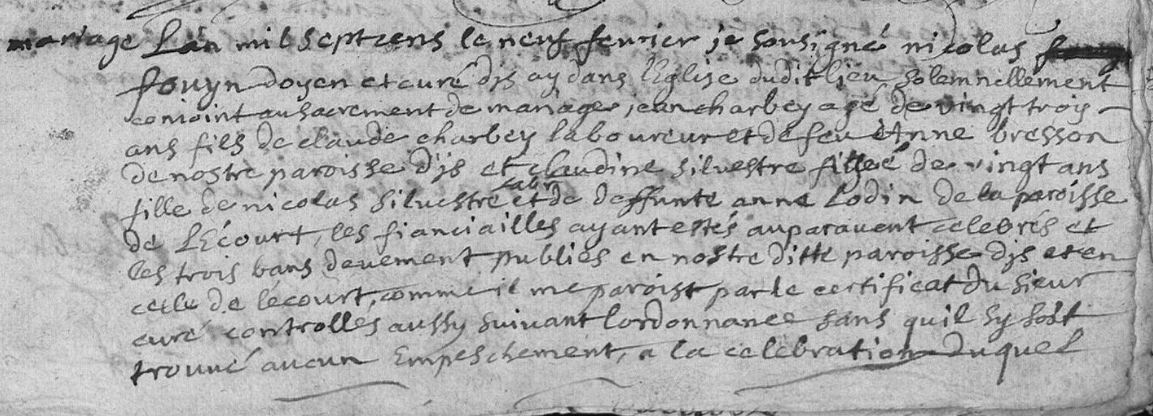 mariage Lan mil sept cens le neuf fevrier je sousigné nicolas
fouyn doyen et curé djs ay dans l'Eglise dudit lieu solemnellement
conioint au sacrement de mariage, jean charbey agé de vingt troys
ans fils de claude charbey laboureur et de feu Anne bresson
de nostre paroisse d'js et claudine silvestre agée de vingt ans
fille de nicolas silvestre labr et de deffunte anne Lodin de la paroisse
de LEcourt, les fianciailles ayant estés auparavent celebrés et
les trois bans devement publiés en nostre ditte paroisse djs et en
celle de lécourt, comme il me paroist par le certificat du sieur
curé controllés aussy suivant lordonnance sans quil sy soit
trouvé aucun Empeschement, a la celebration duquel